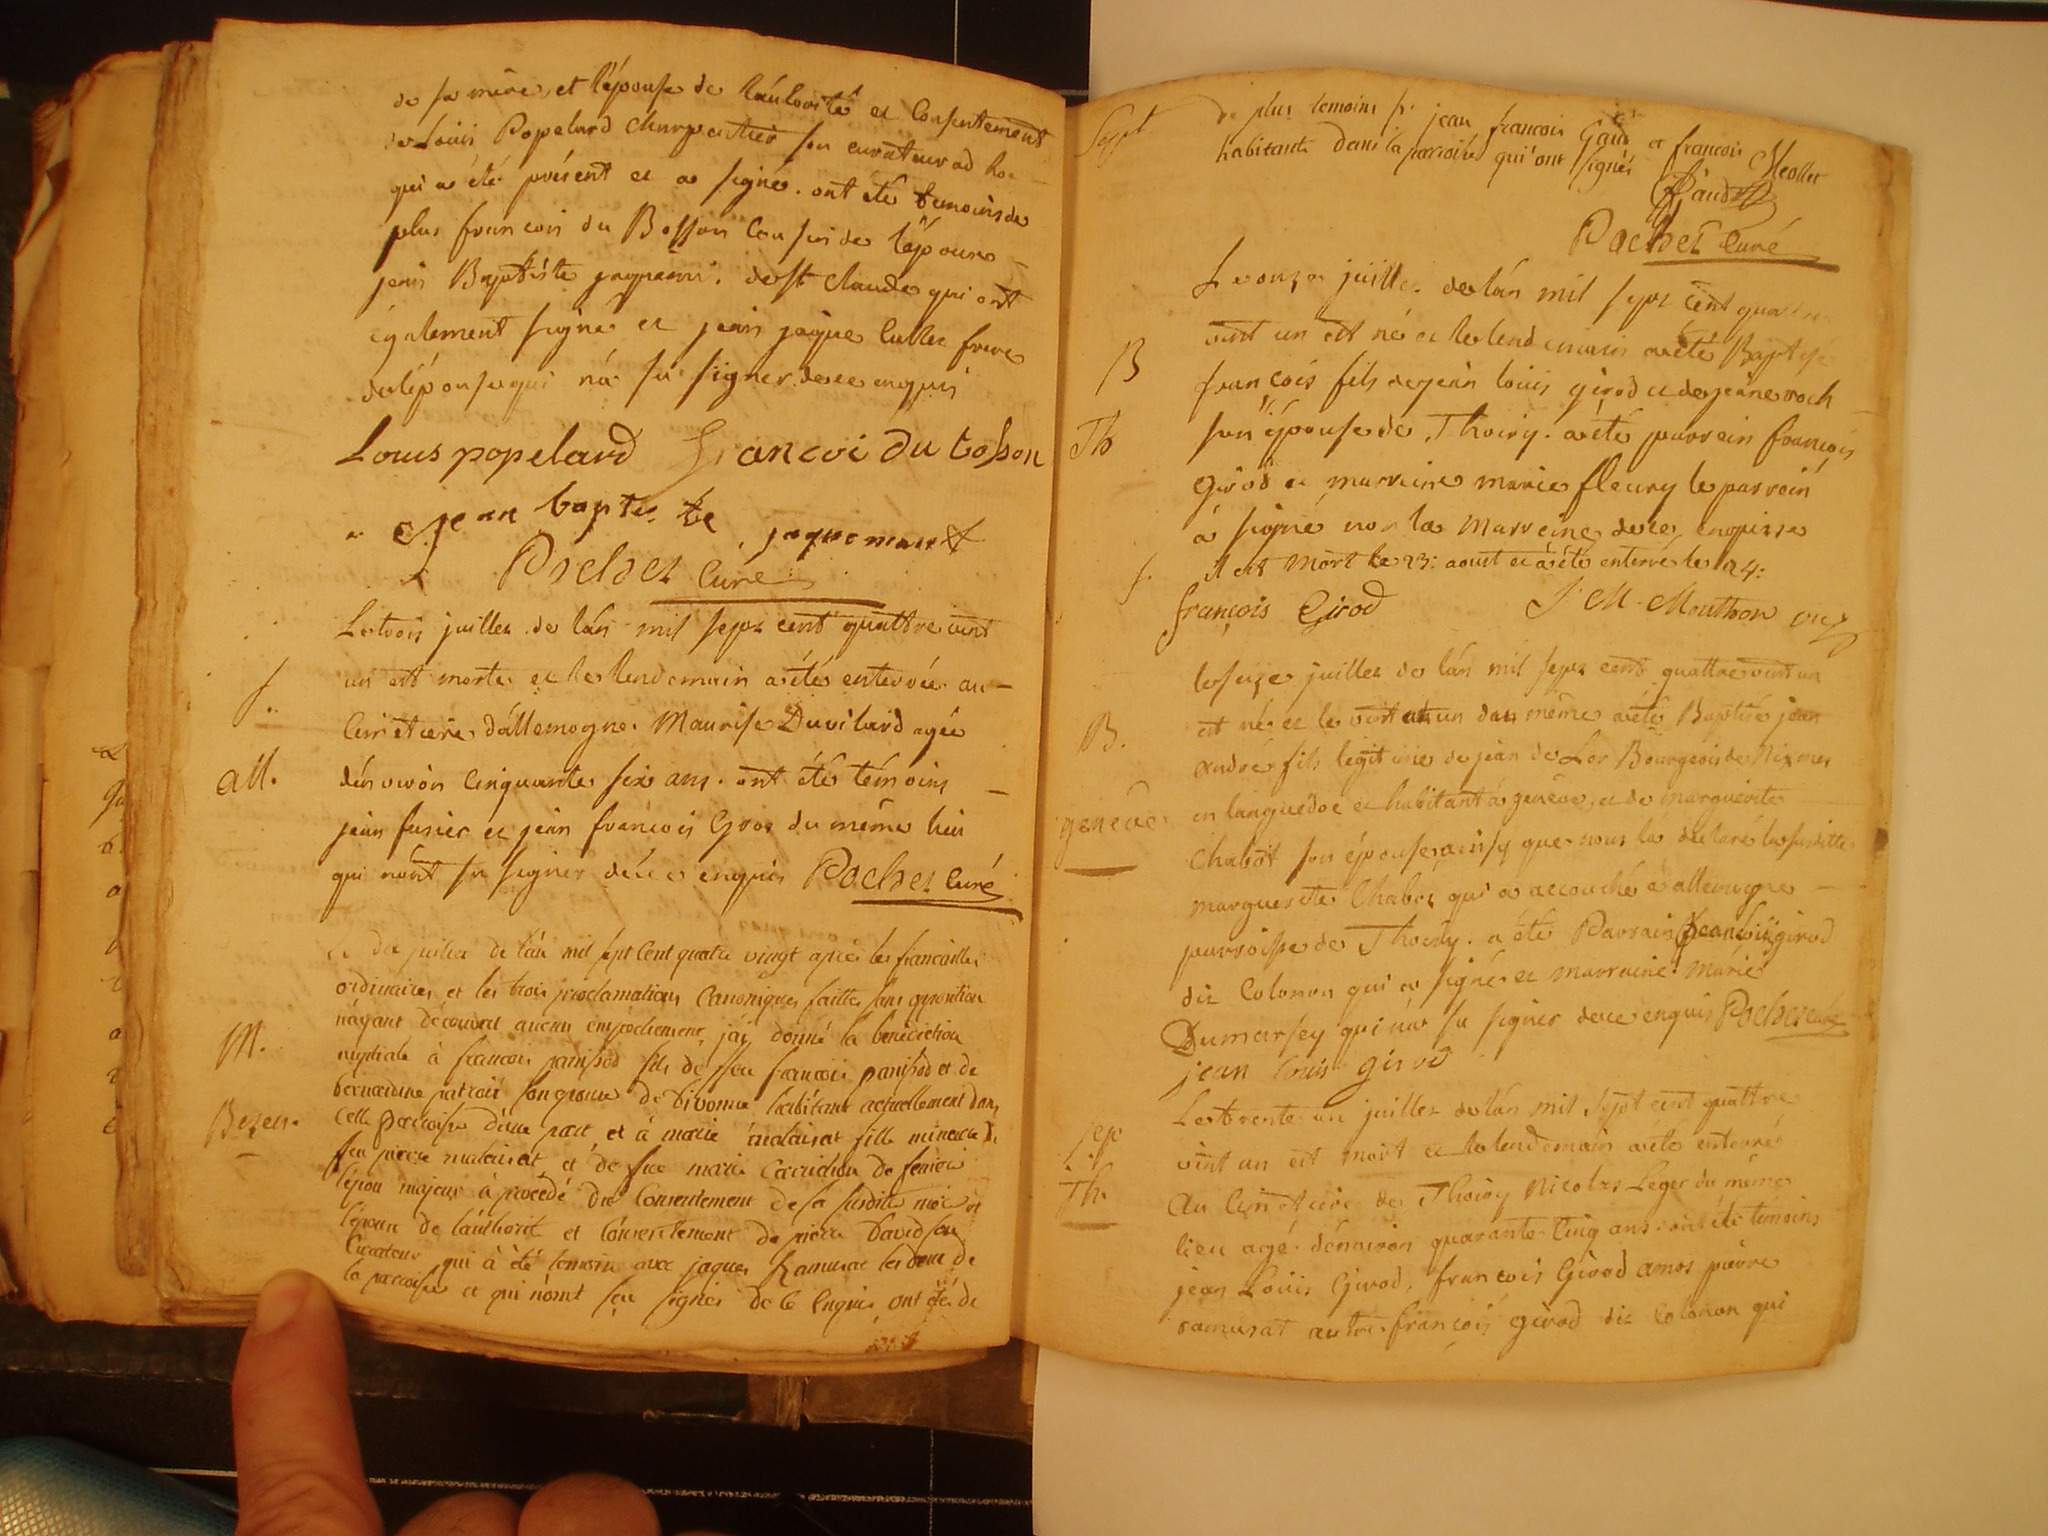 de sa mere, et l'épouse de l'áutorité et Consentement
de Louis Popelard Charpentier son curateur ad hoc
qui a été présent et a signé. ont été temoins de
plus francois du Bosson Cousin de l'épouse
jean Baptiste jaquemi. de st Claude qui ont
également signé et jean jaque lullez frere
de lépouse qui ná su signer de ce enquis
Louis popelard francoi Du bosson
jean baptiste jaquemaret
Pochet Curé
Le trois juillet de lán mil sept cent quattre vint
f. un est morte et le lendemain a été enterrée au
Cimetiere d'állemogne Maurise Duvilard agée
All. dénviron Cinquante six ans. ont été témoins
jean fusier et jean francois Gros du même lieu
qui nónt su signer de ce enquis Pochet Curé
Le dix juillet de lán mil sept Cent quatre vingt après les fiancailles
ordinaires et les trois proclamations Canoniques faittes sans opposition
M. náyant découvert aucun empechement, j'ái donné la benediction
nuptiale à francois panissod fils de feu francois panissod et de
bernardine patrois son epouse de divonne habitant actuellement dans
Cette paroisse dune part, et á marie malaisat fille mineure de
feu pierre malaisat et de marie de
lépou majeur à procedé du Consentement de sa susditte mere et
lépouse de láuthorité et Consentement de pierre David son
Curateur qui à été temoin avec jaques Ramusat les deux de
la paroisse et qui nónt seu signer de Ce Enquis ont été de
Sept de plus temoins sr. jean francois Gaud et francois Meollet
habitants dans la parroisse qui ont signés
Gaud
Pochet Curé
Le onze juillet de lán mil sept cent quatre
vint un est né et le lendemain a été Baptisé
B francois fils de jean louis girod et de jeane roch
Th son épouse de Thoiry. a été parrein francois
Girod et marreine marie fleury le parrein
á signé non la Marreine de ce enquise
f. il est mort le 23: aoust et á été enterré le 24:
françois Girod J. M. Mouthon
le seize juillet de lán mil sept cent quattre vint un
B. est né et le vint un du même a été Baptisé jean
andré fils legitime de jean de Lor Bourgeois de Nismes
geneve en languedoc et habitant á genève et de marguerite
Chabot son épouse ainsy que nous lá declaré la susditte
marguerite Chabot qui a accouché a allemogne
parroisse de Thoiry. a été Parrain jean louis girod
dit Colomon qui a signé et marraine Marie
Dumarsey qui ná su signer de ce enquis Pochet curé
jean louis girod
Le trente un juillet de lán mil sept cent quattre
sep vint un est mort et le lendemain a été enterré
Th. Au Cimetiere de Thoiry Nicolas Leger du même
lieu agé dénviron quarante Cinq ans ont été témoins
jean Louis Girod, francois Girod amos pierre
ramusat autre françois girod dit Colomon qui